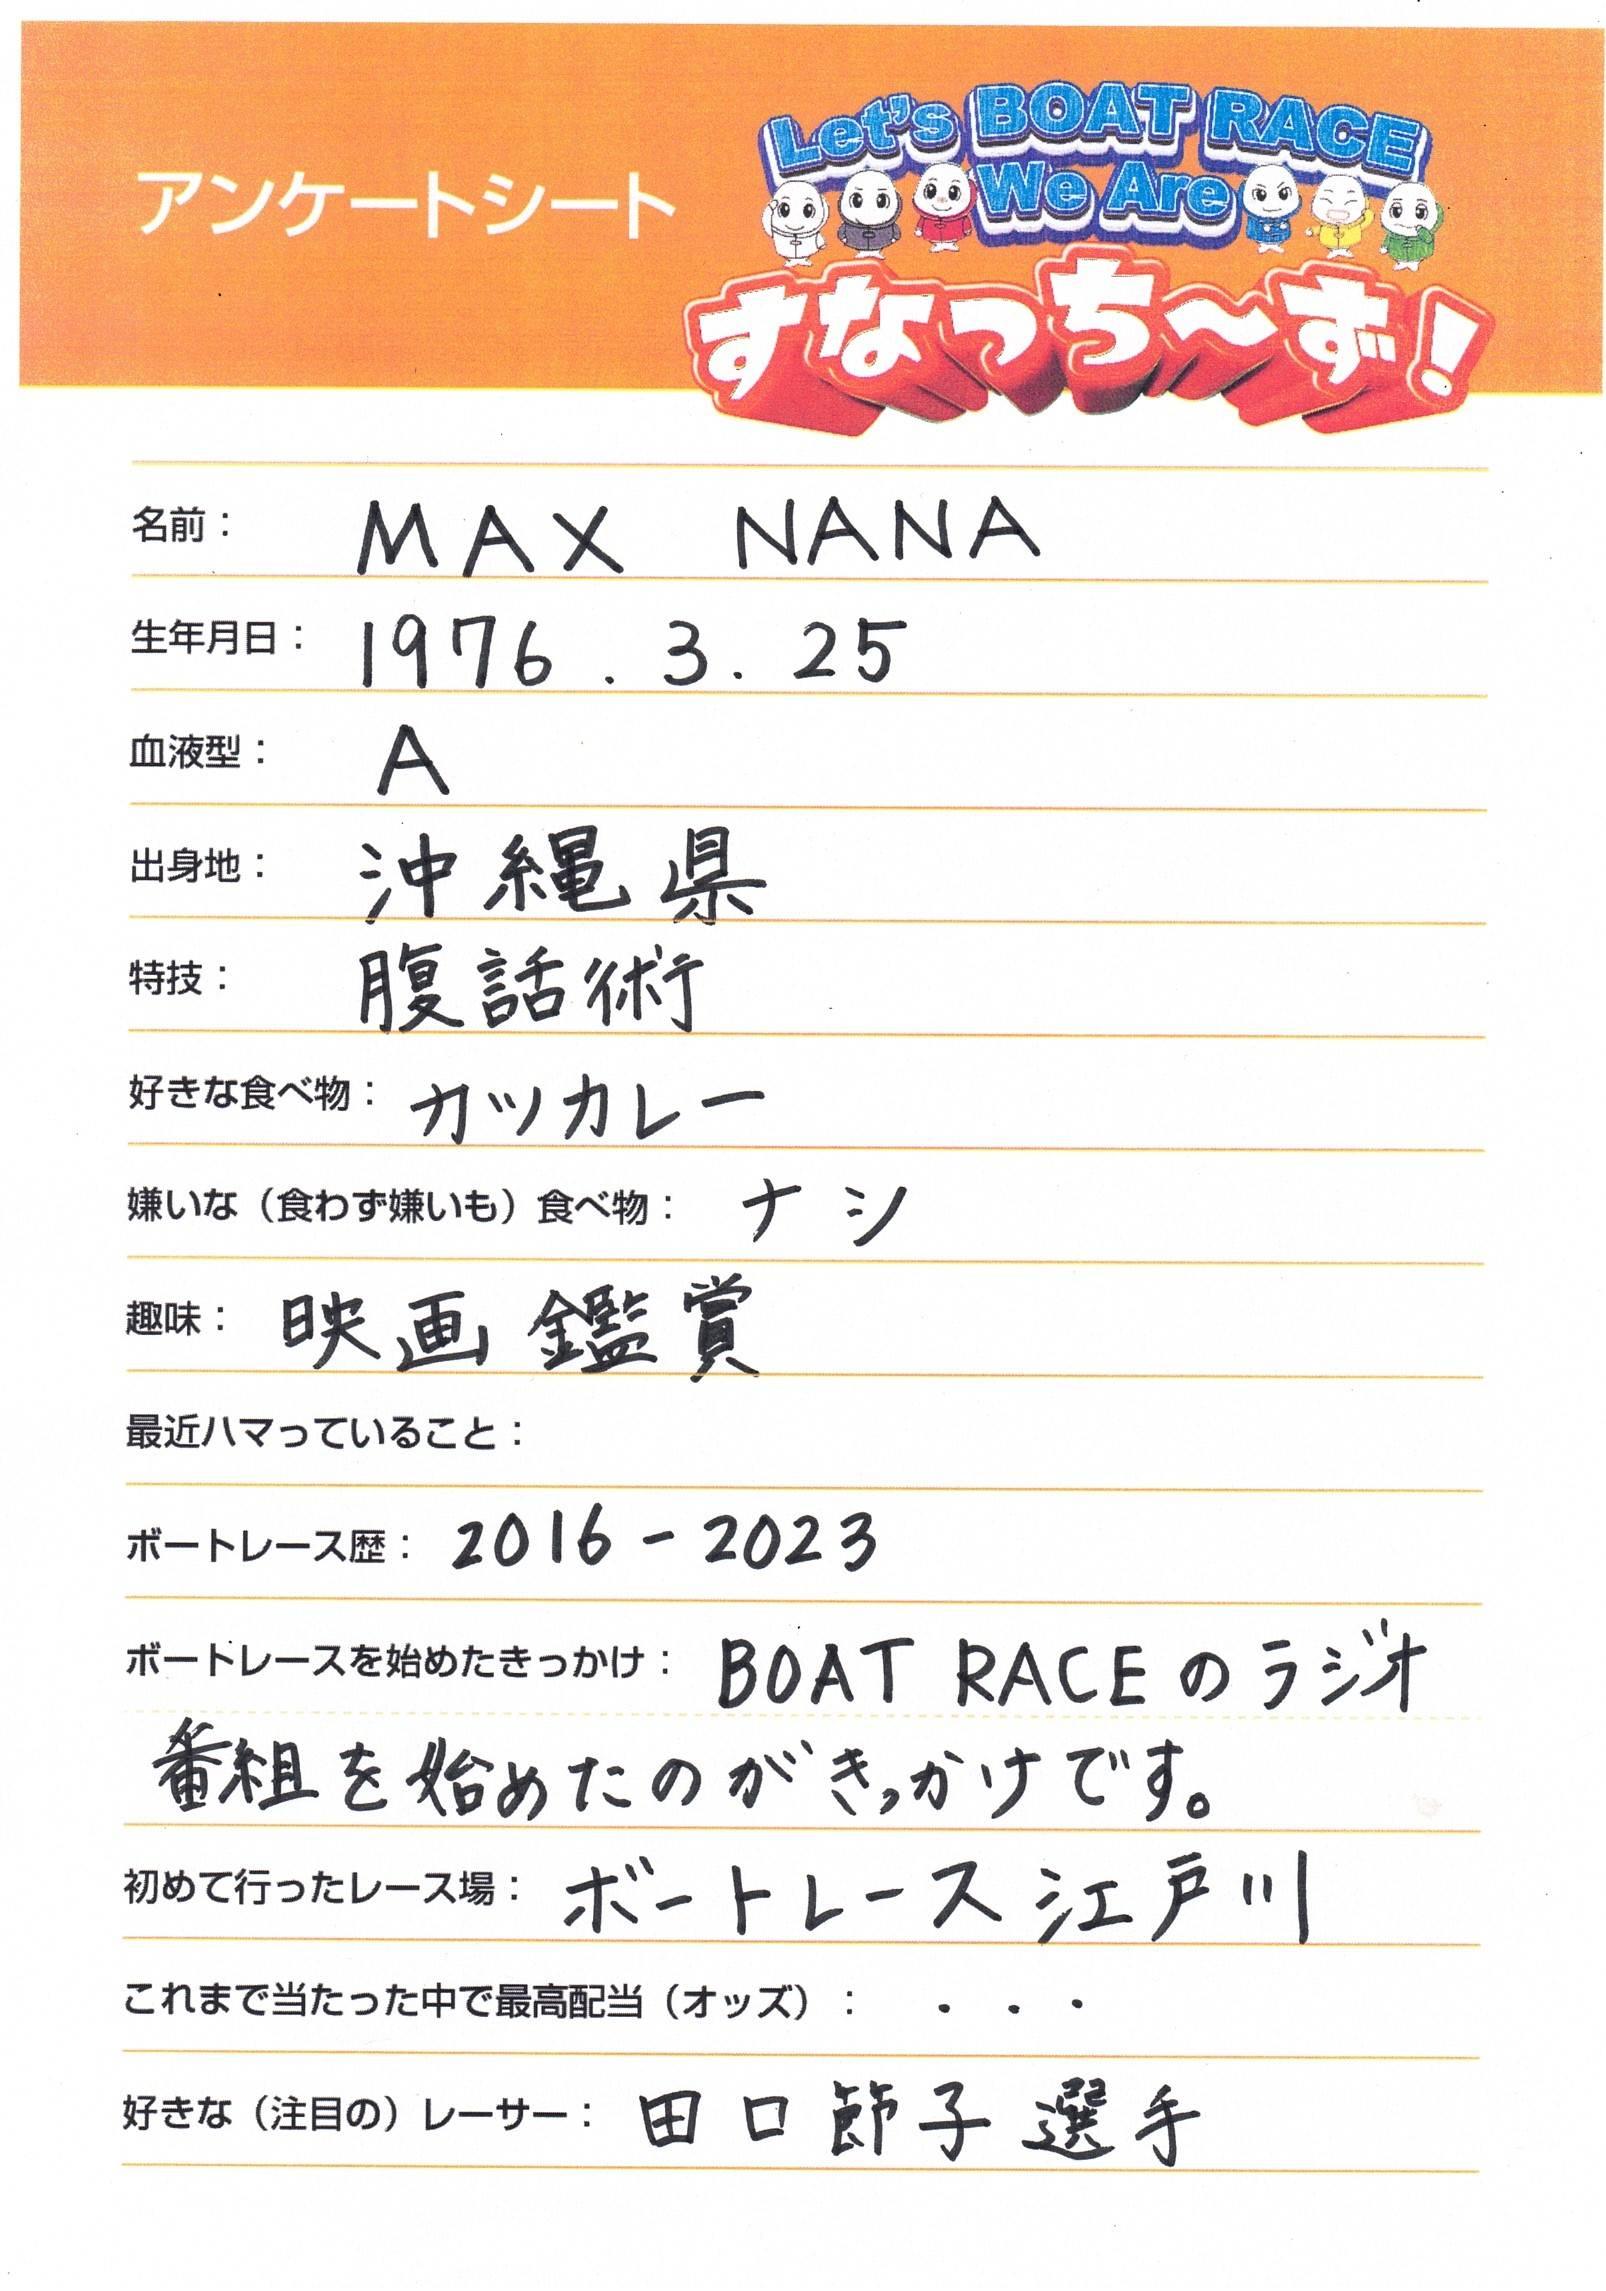 アンケートシート
Let's BOAT RACE
We Are
すなっち～ず！
名前： MAX NANA
生年月日： 1976.3.25
血液型： A
出身地： 沖縄県
特技： 腹話術
好きな食べ物： カツカレー
嫌いな（食わず嫌いも）食べ物： ナシ
趣味： 映画鑑賞
最近ハマっていること：
ボートレース歴： 2016-2023
ボートレースを始めたきっかけ： BOAT RACEのラジオ
番組を始めたのがきっかけです。
初めて行ったレース場： ボートレース江戸川
これまで当たった中で最高配当（オッズ）： ・・・
好きな（注目の）レーサー： 田口節子選手